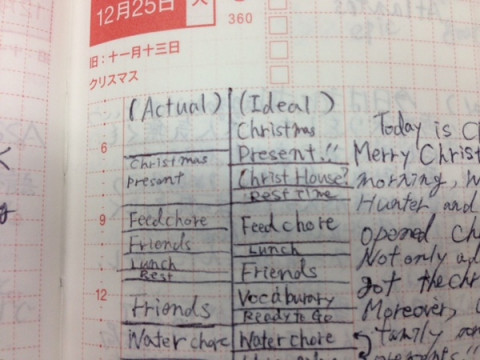 12月25日 火
360
旧:十一月十三日
クリスマス
(Actual) (Ideal)
Christmas
6
Present!!
Christmas
present
Christ House?
Rest Time
9
Feedchore
Feed chore
Friends
Lunch
Lunch
Rest
Friends
12
Vocaburary
Friends
Ready to Go
Water chore
Water chore
Today is
Merry Christ
morning,
Hunter and
opened
Not only
got the
Moreover,
family